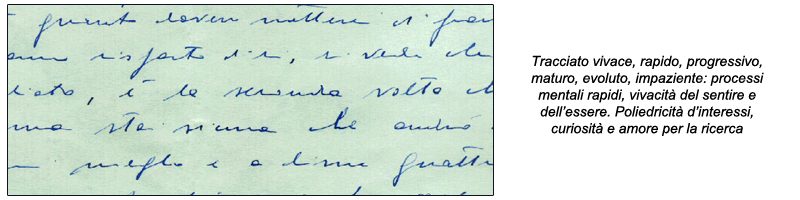 dover mettere
risposto di sì, si vede che
, è la seconda volta
sta sicura che andrò
meglio e a dirne quattro
Tracciato vivace, rapido, progressivo,
maturo, evoluto, impaziente: processi
mentali rapidi, vivacità del sentire e
dell'essere. Poliedricità d'interessi,
curiosità e amore per la ricerca